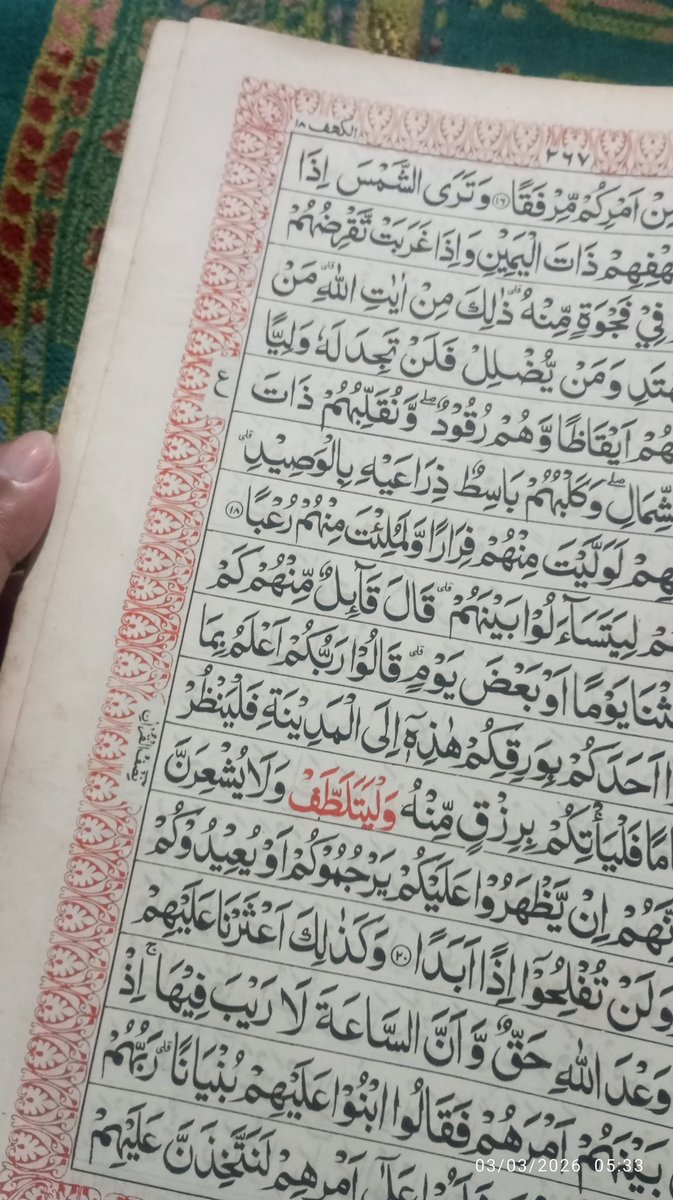 الكهف ١٨
٢٦٧
اَمْرِكُمْ مِّرْفَقًا ١٦ وَتَرَى الشَّمْسَ اِذَا
ذَاتَ الْيَمِيْنِ وَاِذَا غَرَبَتْ تَّقْرِضُهُمْ
فِيْ فَجْوَةٍ مِّنْهُ ۗ ذٰلِكَ مِنْ اٰيٰتِ اللّٰهِ ۗ مَنْ
وَمَنْ يُّضْلِلْ فَلَنْ تَجِدَ لَهٗ وَلِيًّا
ع
اَيْقَاظًا وَّهُمْ رُقُوْدٌ ۖ وَّنُقَلِّبُهُمْ ذَاتَ
وَكَلْبُهُمْ بَاسِطٌ ذِرَاعَيْهِ بِالْوَصِيْدِ ۗ
لَوَلَّيْتَ مِنْهُمْ فِرَارًا وَّلَمُلِئْتَ مِنْهُمْ رُعْبًا ١٨
لِيَتَسَاۤءَلُوْا بَيْنَهُمْ ۗ قَالَ قَاۤىِٕلٌ مِّنْهُمْ كَمْ
يَوْمًا اَوْ بَعْضَ يَوْمٍ ۗ قَالُوْا رَبُّكُمْ اَعْلَمُ بِمَا
اَحَدَكُمْ بِوَرِقِكُمْ هٰذِهٖٓ اِلَى الْمَدِيْنَةِ فَلْيَنْظُرْ
نصف القرآن
فَلْيَأْتِكُمْ بِرِزْقٍ مِّنْهُ وَلْيَتَلَطَّفْ وَلَا يُشْعِرَنَّ
اِنْ يَّظْهَرُوْا عَلَيْكُمْ يَرْجُمُوْكُمْ اَوْ يُعِيْدُوْكُمْ
وَلَنْ تُفْلِحُوْٓا اِذًا اَبَدًا ٢٠ وَكَذٰلِكَ اَعْثَرْنَا عَلَيْهِمْ
وَعْدَ اللّٰهِ حَقٌّ وَّاَنَّ السَّاعَةَ لَا رَيْبَ فِيْهَا ۚ اِذْ
اَمْرَهُمْ فَقَالُوا ابْنُوْا عَلَيْهِمْ بُنْيَانًا ۗ رَبُّهُمْ
عَلٰٓى اَمْرِهِمْ لَنَتَّخِذَنَّ عَلَيْهِمْ
03/03/2026 05:33